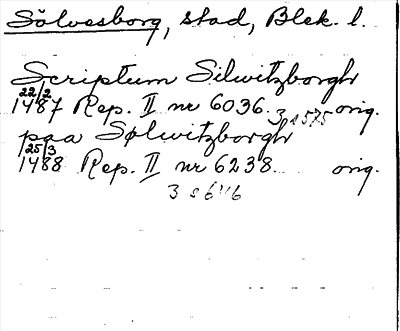 Sölvesborg, stad, Blek. l.
Scriptum Silwitzborgh
22/2
1487 Rep. II nr 6036. orig.
paa Sølwitzborgh
25/3
1488 Rep. II nr 6238 orig.